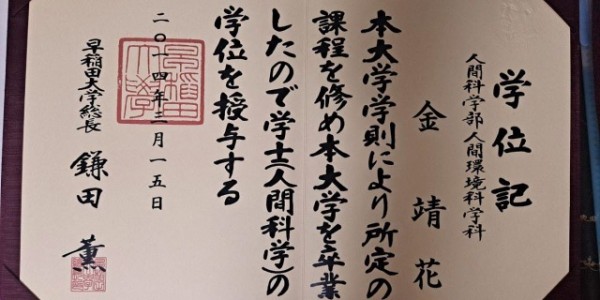 学位記
人間科学部人間環境科学科
金靖花
本大学学則により所定の
課程を修め本大学を卒業
したので学士(人間科学)の
学位を授与する
二〇一四年三月一五日
早稲田大学総長 鎌田 薫